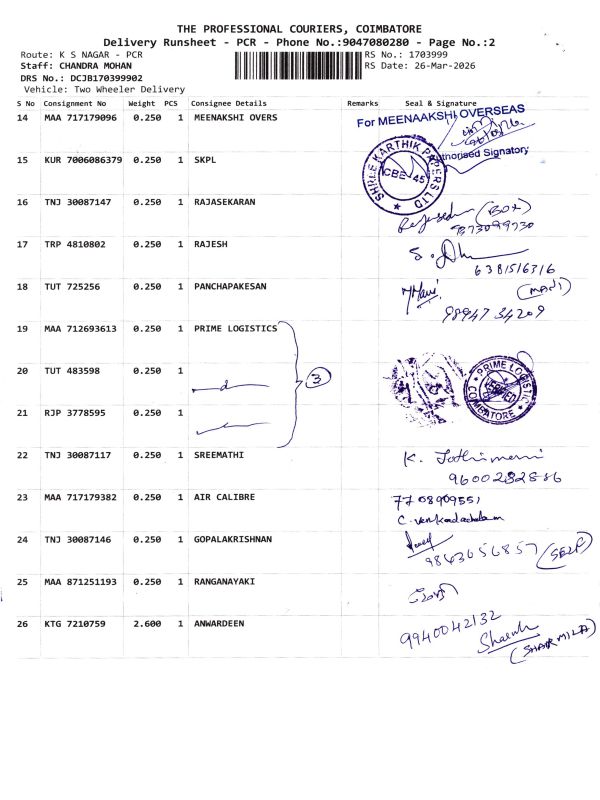 THE PROFESSIONAL COURIERS, COIMBATORE
Delivery Runsheet - PCR - Phone No.:9047080280 - Page No.:2
Route: K S NAGAR - PCR
RS No.: 1703999
Staff: CHANDRA MOHAN
RS Date: 26-Mar-2026
DRS No.: DCJB170399902
Vehicle: Two Wheeler Delivery
S No Consignment No Weight PCS Consignee Details Remarks Seal & Signature
14 MAA 717179096 0.250 1 MEENAKSHI OVERS
For MEENAAKSHI OVERSEAS
Authorised Signatory
15 KUR 7006086379 0.250 1 SKPL
SHREE KARTHIK PAPERS LTD
CBE-45
16 TNJ 30087147 0.250 1 RAJASEKARAN
(BOX)
9873099730
17 TRP 4810802 0.250 1 RAJESH
6381516316
18 TUT 725256 0.250 1 PANCHAPAKESAN
(MADI)
98947 34209
19 MAA 712693613 0.250 1 PRIME LOGISTICS
20 TUT 483598 0.250 1
3
PRIME LOGISTIC
COIMBATORE
21 RJP 3778595 0.250 1
22 TNJ 30087117 0.250 1 SREEMATHI
K. Jothimani
9600232886
23 MAA 717179382 0.250 1 AIR CALIBRE
7708909551
C. Venkadachalam
24 TNJ 30087146 0.250 1 GOPALAKRISHNAN
9843056857 (SELF)
25 MAA 871251193 0.250 1 RANGANAYAKI
26 KTG 7210759 2.600 1 ANWARDEEN
9940042132
(SHARMILA)